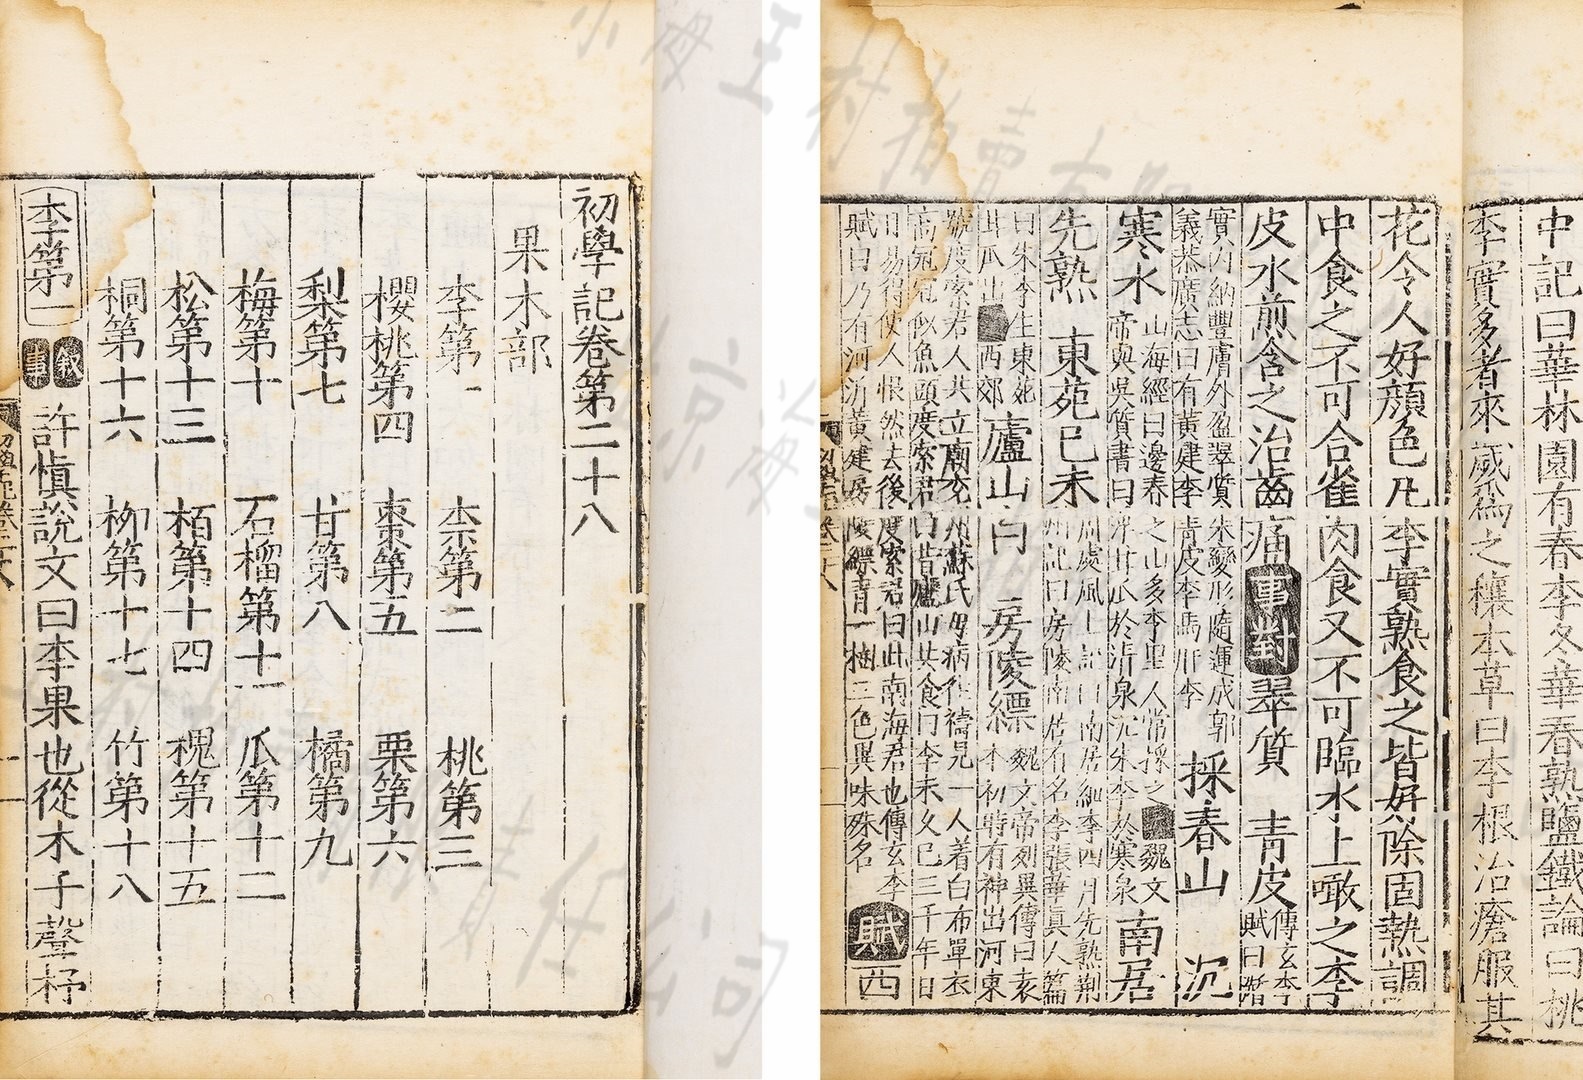 初學記卷第二十八
果木部
李第一 柰第二 桃第三
櫻桃第四 棗第五 栗第六
梨第七 甘第八 橘第九
梅第十 石榴第十一 瓜第十二
松第十三 栢第十四 槐第十五
桐第十六 柳第十七 竹第十八
李第一 敘事 許慎說文曰李果也從木子聲杍
中記曰華林園有春李冬華春熟鹽鐵論曰桃
李實多者來歲為之穰本草曰李根治瘡服其
花令人好顔色凡李實熟食之皆好除固熱調
中食之不可合雀肉食又不可臨水上噉之李
皮水煎含之治齒痛 事對 翠質 青皮 傅玄李
賦曰潛
實內納豐膚外盈翠質朱變形隨運成郭
義恭廣志曰有黃建李青皮李馬肝李 採春山 沉
寒水 山海經曰邊春之山多李里人常採之 魏文
帝與吳質書曰浮甘瓜於清泉沉朱李於寒泉 南居
先熟 東苑巳未 周處風土記曰南居細李四月先熟荆
州記曰房陵南居有名李張華真人篇
曰朱李生東苑
甘瓜出西郊 廬山 白 房陵縹 魏文帝列異傳曰袁
本初時有神出河東
號度索君人共立廟兖州蘇氏母病往禱見一人着白布單衣
高冠冠似魚頭度索君曰昔廬山共食白李未久巳三千年日
月易得使人悵然去後度索君曰此南海君也傅玄李
賦曰乃有河沂黃建房陵縹青一樹二色異味殊名 賦 西